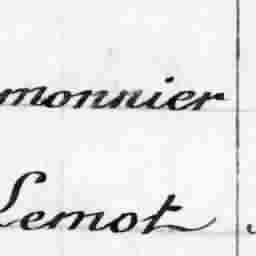 monnier
Lemot